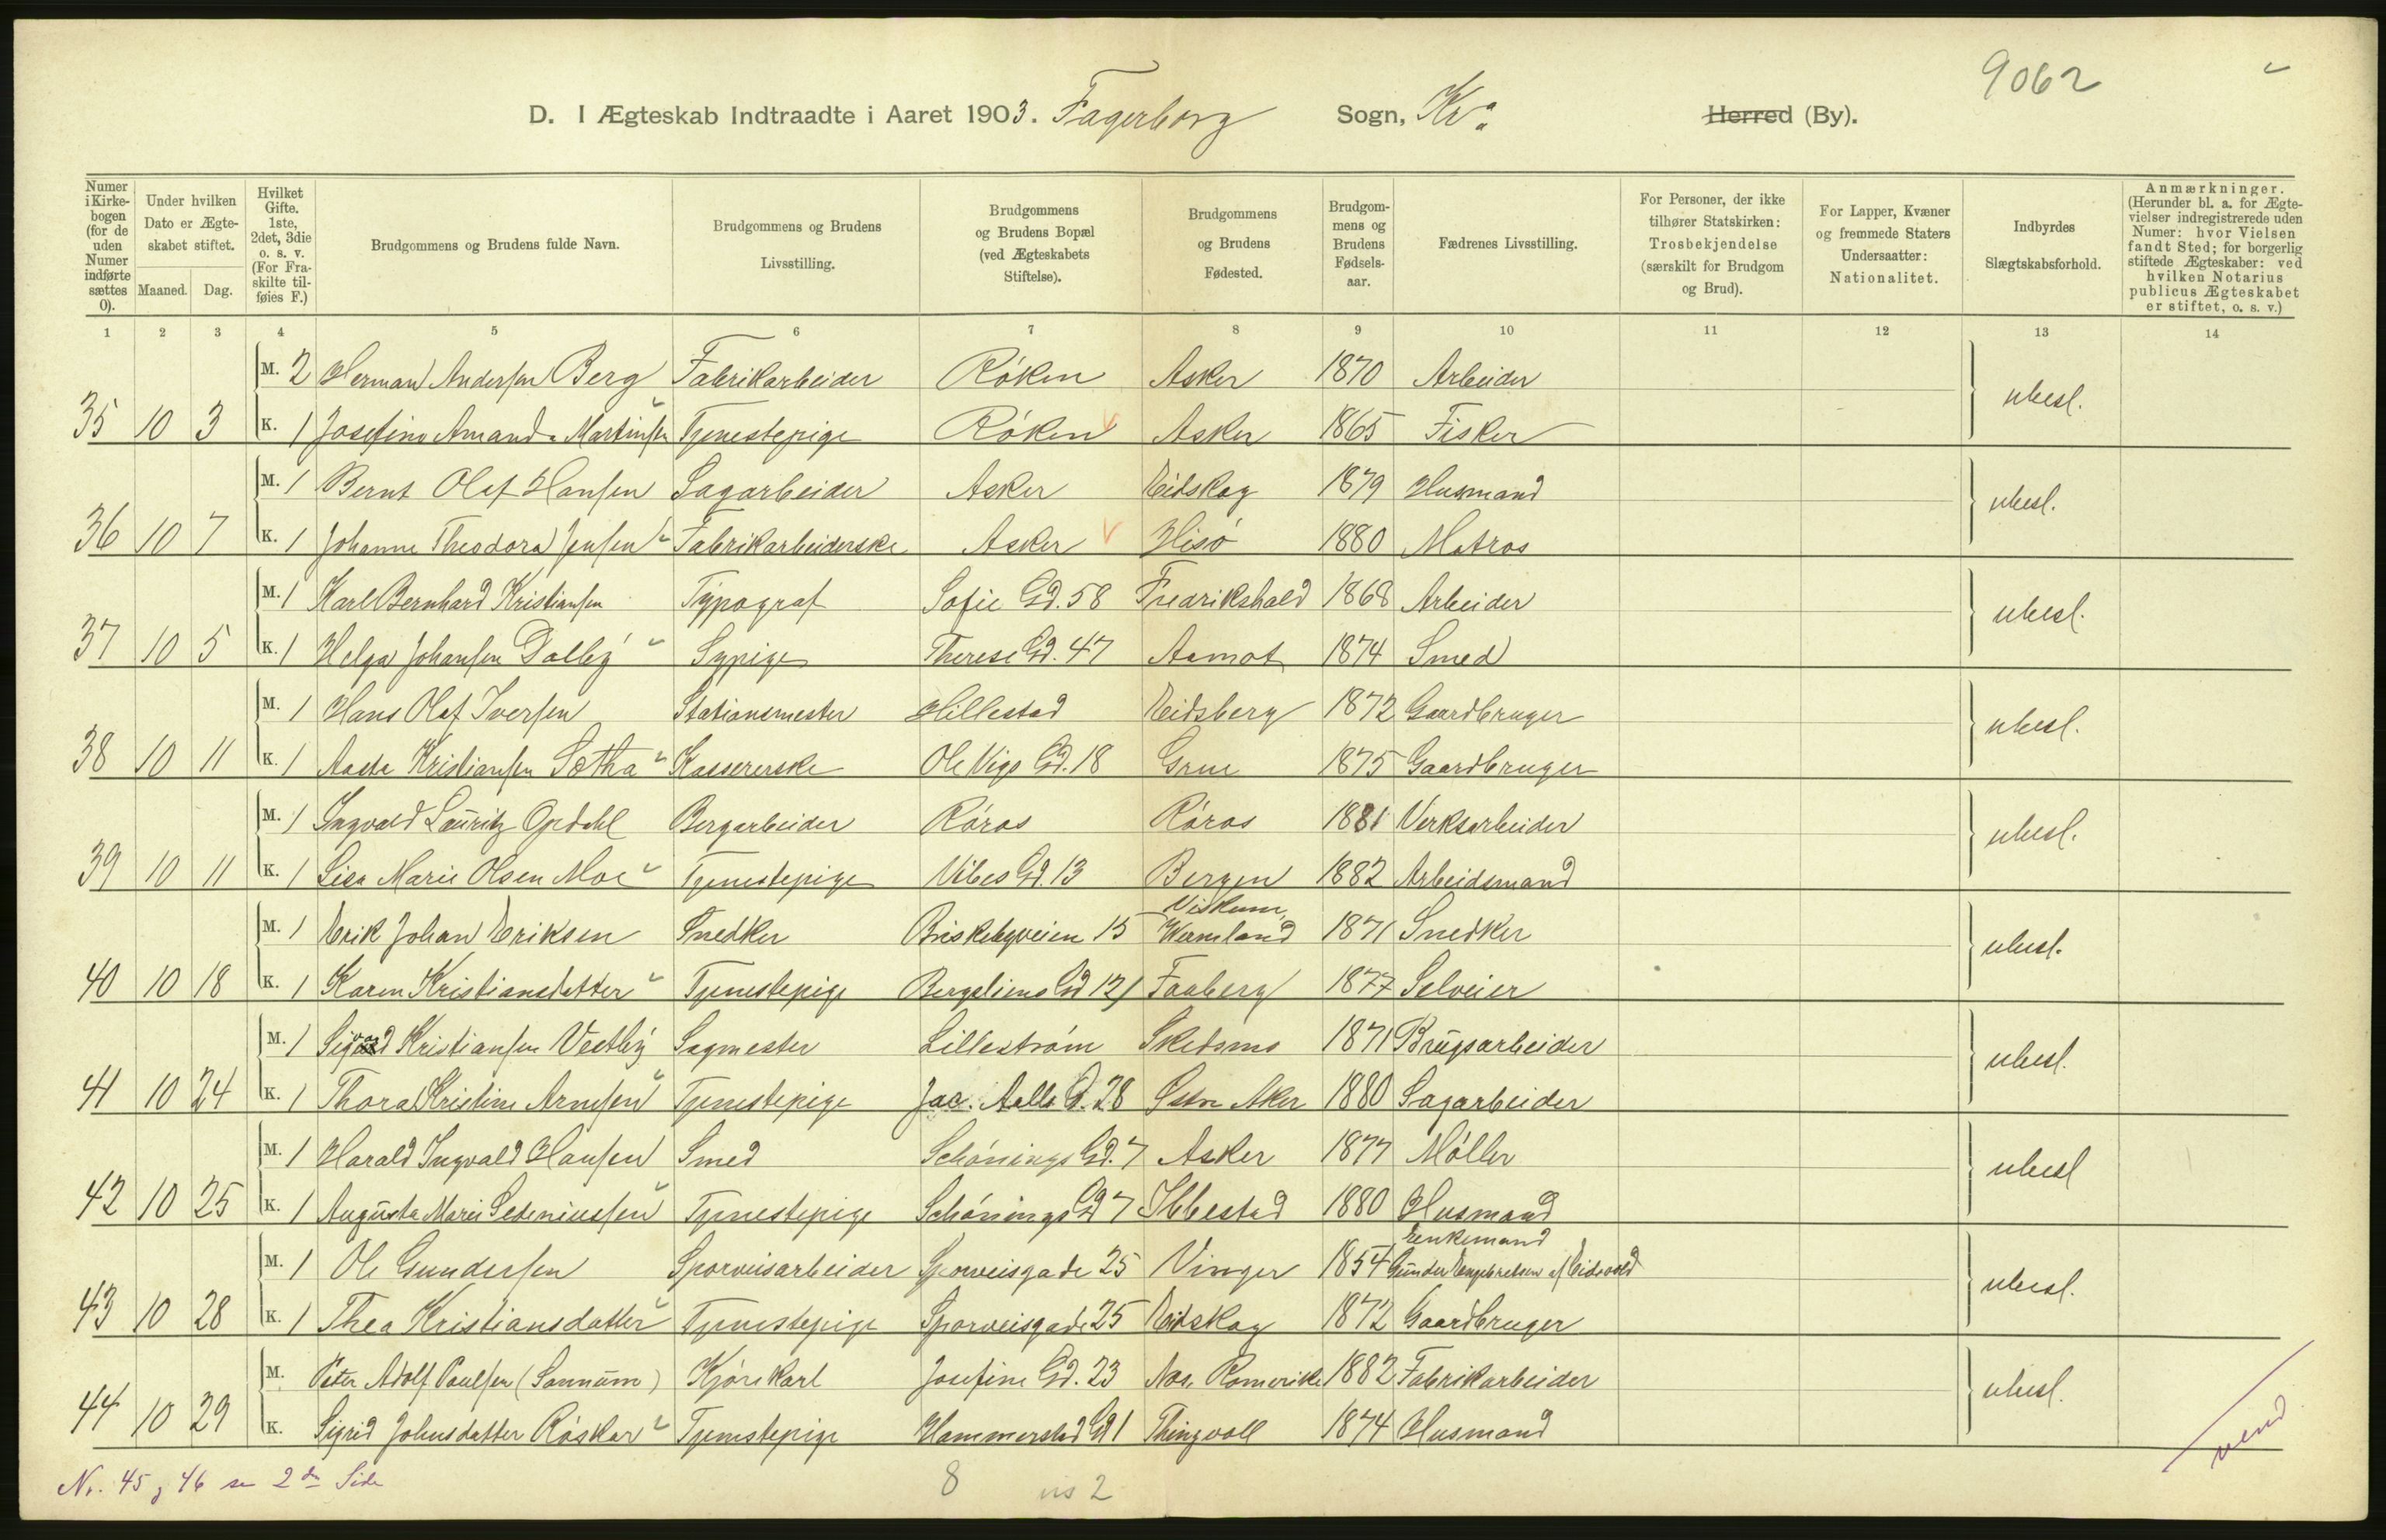 9062
D. I Ægteskab Indtraadte i Aaret 1903. Fagerborg Sogn, Kra. Herred (By).
Numer i Kirkebogen (for de uden Numer indførte sættes 0).
Under hvilken Dato er Ægteskabet stiftet.
Maaned. Dag.
Hvilket Gifte. 1ste, 2det, 3die o. s. v. (For Fraskilte tilføies F.)
Brudgommens og Brudens fulde Navn.
Brudgommens og Brudens Livsstilling.
Brudgommens og Brudens Bopæl (ved Ægteskabets Stiftelse).
Brudgommens og Brudens Fødested.
Brudgommens og Brudens Fødselsaar.
Fædrenes Livsstilling.
For Personer, der ikke tilhører Statskirken: Trosbekjendelse (særskilt for Brudgom og Brud).
For Lapper, Kvæner og fremmede Staters Undersaatter: Nationalitet.
Indbyrdes Slægtskabsforhold.
Anmærkninger. (Herunder bl. a. for Ægtevielser indregistrerede uden Numer: hvor Vielsen fandt Sted; for borgerlig stiftede Ægteskaber: ved hvilken Notarius publicus Ægteskabet er stiftet, o. s. v.)
1 2 3 4 5 6 7 8 9 10 11 12 13 14
M. 2 Herman Andersen Berg Fabrikarbeider Röken Asker 1870 Arbeider ubesl.
35 10 3 K. 1 Josefine Amanda Martinsen Tjenestepige Röken Asker 1865 Fisker
M. 1 Bernt Olaf Hansen Sagarbeider Asker Eidskog 1879 Husmand ubesl.
36 10 7 K. 1 Johanne Theodora Jensen Fabrikarbeiderske Asker Hisö 1880 Matros
M. 1 Karl Bernhard Kristiansen Typograf Sofie Gd. 58 Fredrikshald 1868 Arbeider ubesl.
37 10 5 K. 1 Helga Johansen Dalby Sypige Therese Gd. 47 Aamot 1874 Smed
M. 1 Hans Olaf Iversen Stationsmester Hillestad Eidsberg 1872 Gaardbruger ubesl.
38 10 11 K. 1 Aasta Kristiansen Sætha Kassererske Ole Vigs Gd. 18 Grue 1875 Gaardbruger
M. 1 Ingvald Lauritz Opdahl Bergarbeider Röros Röros 1881 Verksarbeider ubesl.
39 10 11 K. 1 Lisa Marie Olsen Moe Tjenestepige Vibes Gd. 13 Bergen 1882 Arbeidsmand
M. 1 Erik Johan Eriksen Snedker Briskebyveien 15 Viskum, Wermland 1871 Snedker ubesl.
40 10 18 K. 1 Karen Kristiansdatter Tjenestepige Bergsliens Gd 12/ Faaberg 1877 Selveier
M. 1 Sigvard Kristiansen Vestby Sagmester Lilleström Skedsmo 1871 Brugsarbeider ubesl.
41 10 24 K. 1 Thora Kristine Arnesen Tjenestepige Jac. Aalls G. 28 Østre Aker 1880 Sagarbeider
M. 1 Harald Ingvald Hansen Smed Schönings Gd. 7 Asker 1877 Möller ubesl
42 10 25 K. 1 Augusta Marie Sedeniussen Tjenestepige Schönings Gd 7 Ibbestad 1880 Husmand
M. 1 Ole Gundersen Sporveisarbeider Sporveisgade 25 Vinger 1854 Enkemand Gunder Engebretsen af Eidsvold ubesl.
43 10 28 K. 1 Thea Kristiansdatter Tjenestepige Sporveisgade 25 Eidskog 1872 Gaardbruger
M. Peter Adolf Paulsen (Sannum) Kjörekarl Josefine Gd. 23 Nes, Romerike 1882 Fabrikarbeider ubesl.
44 10 29 K. Sigrid Johnsdatter Röskar Tjenestepige Hammerstad Gd 1 Thingvoll 1874 Husmand
Nr. 45 og 46 se 2den Side 8 2
vend